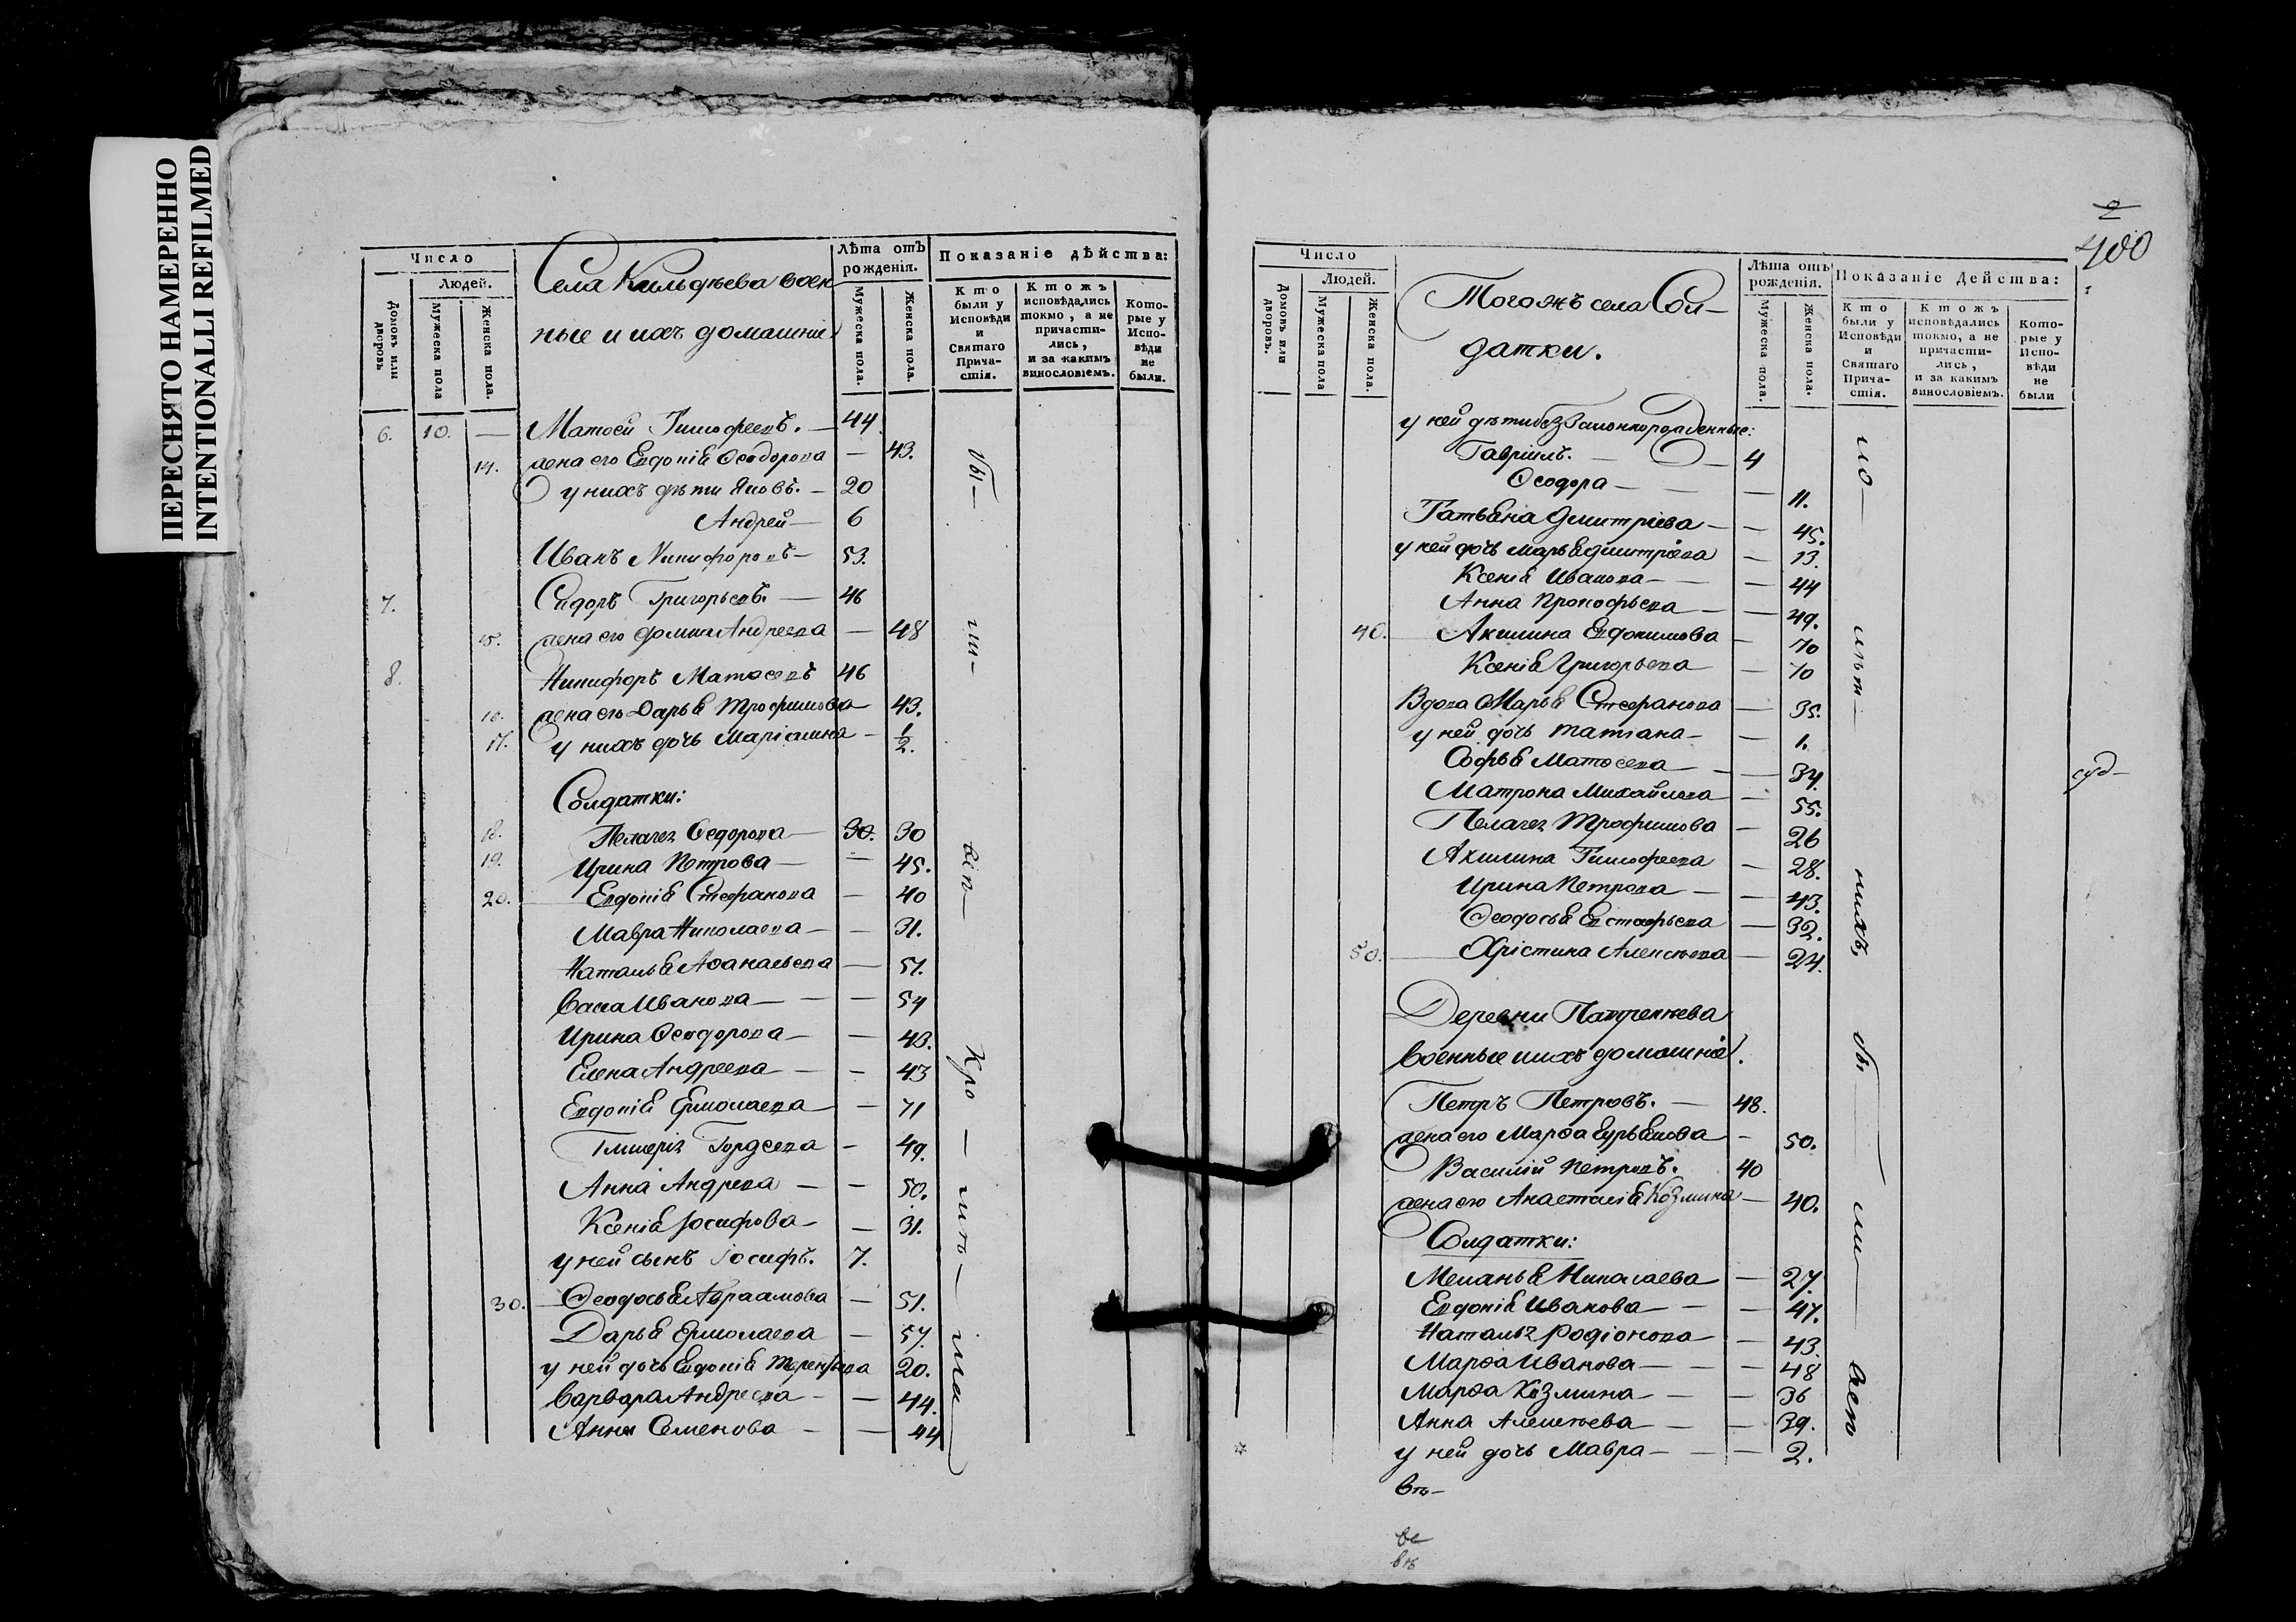 ПЕРЕСНЯТО НАМЕРЕННО
INTENTIONALLI REFILMED
Число
Людей.
Домовъ или дворовъ
Мужеска пола
Женска пола.
Села Кильдѣева воен
ные и ихъ домашніе
Лѣта отъ рожденія.
Мужеска пола.
Женска пола.
Показаніе дѣйства:
Кто были у Исповѣди и Святаго Прича-стія.
Ктожъ исповѣдались токмо, а не причасти-лись, и за какимъ винословіемъ.
Кото-рые у Испо-вѣди не были.
6. 10. — Матѳей Тимофеевъ. — 44
14. жена его Евдокія Ѳеодорова — 43.
у нихъ дѣти Яковъ. — 20
Андрей — 6
Иванъ Никифоровъ — 53.
7. Сидоръ Григорьевъ. — 46
15. жена его Домна Андреева — 48
8. Никифоръ Матѳеевъ 46
16. жена его Дарья Трофимова 43.
17. у нихъ дочь Маріамна — 1/2.
Солдатки:
18. Пелагея Ѳедорова — 30. 30
19. Ирина Петрова — — 45.
20. Евдокія Стефанова — 40
Мавра Николаева — — 31.
Наталья Аѳанасьева — 51.
Васса Иванова — — 54
Ирина Ѳеодорова — — 43.
Елена Андреева — — 43
Евдокія Ермолаева — 71
Гликерія Гордеева — 49.
Анна Андреева — — 50.
Ксенія Іосифова — — 31.
у ней сынъ Іосифъ. 7.
30. Ѳеодосья Авраамова — 51.
Дарья Ермолаева — 57.
у ней дочь Евдокія Терентьева 20.
Варвара Андреева — — 44.
Анна Семенова — — 44
бы — ли —
400
Число
Людей.
Домовъ или дворовъ.
Мужеска пола
Женска пола.
Тогожъ села Сол-
датки.
Лѣта отъ рожденія.
Мужеска пола.
Женска пола.
Показаніе Дейсшва:
Кто были у Исповѣди и Святаго Прича-стія.
Ктожъ исповѣдались токмо, а не причасти-лись, и за какимъ винословіемъ.
Кото-рые у Испо-вѣди не были
у ней дѣти беззаконнорожденные:
Гавріилъ. — — 4
Ѳеодора — — — 11.
Татьяна Дмитріева — — 45.
у ней дочь Марья Дмитріева — 13.
Ксенія Иванова — — 44
Анна Прокофьева — — 49.
40. Акилина Евдокимова — 70
Ксенія Григорьева — 70
Вдова Марья Стефанова — 35.
у ней дочь Татіана — — 1.
Софья Матѳеева — — 34.
Матрона Михайлова — 55.
Пелагея Трофимова — 26
Акилина Тимофеева — 28.
Ирина Петрова — — 43.
Ѳеодосья Евстафьева — 32.
50. Хрістина Алексеева — 24.
Деревни Панфелѣева
военные и ихъ домашніе.
Петръ Петровъ. — 48.
жена его Марѳа Гурьянова — 50.
Василій Петровъ. 40
жена его Анастасія Козмина — 40.
Солдатки:
Меланья Николаева — 27.
Евдокія Иванова — — 47.
Наталья Родіонова — 43.
Марѳа Иванова — — 48
Марѳа Козмина — — 36
Анна Алексѣева — — 39.
у ней дочь Мавра — — 2.
нихъ, бы — ли — всего